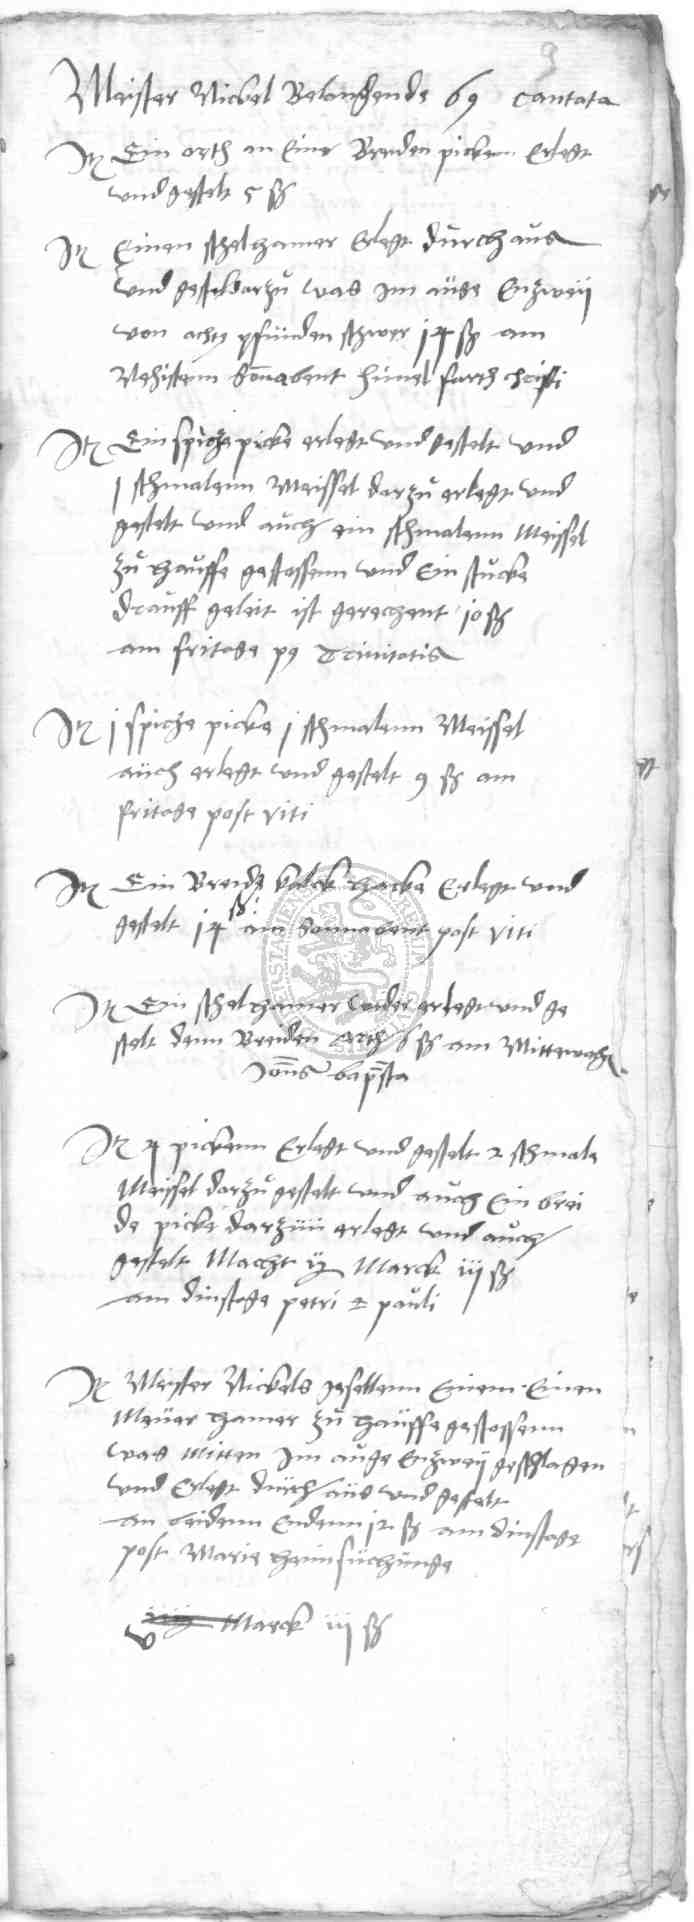 9
Meister Nickel Belangende 69 Cantata
Itz Ein orth an Eine Breiden picken Erlegt
und gestelt 5 sz
Itz Einen schelhamer Erlegt durchaus
und gestel darzu was Im auge Enzweÿ
von acht pfunden schwer 14 sz am
Nehisten Sonabent himelfarth christi
Itz Ein spicze picke erlegt und gestelt und
j schmalenn Meissel darzu erlegt und
gestelt und auch ein schmalenn Meissel
zu hauffe gestossenn und Ein stucke
drauff geleit ist gerechent 10 sz
am fritage p9 Trinitatis
Itz j spicze picke j schmalenn Meissel
auch erlegt und gestelt 9 sz am
fritage post viti
Itz Ein Breide kalck hacke Erlegt und
gestelt 14 sz am Sonnabent post viti
Itz Ein schelhamer wider erlegt und ge
stelt denn Breiden orth 6 sz am Mittewoch
Jonns bapsta
Itz 4 pickenn Erlegt und gestelt 2 schmale
Meissel darzu gestelt und auch Ein brei
de picke darzuu erlegt und auch
gestelt Macht Marck iij sz
am dinstage petri & pauli
Itz Meister Nickels gesellenn Einem Einen
Meuer hamer zu hauffe gestossenn
was Mitten Im auge Enzweÿ geschlagen
und Erlegt durchaus und gestelt
an beidenn Endenn 12 sz am dinstage
post Marie heimsuchunge
v Marck iij sz